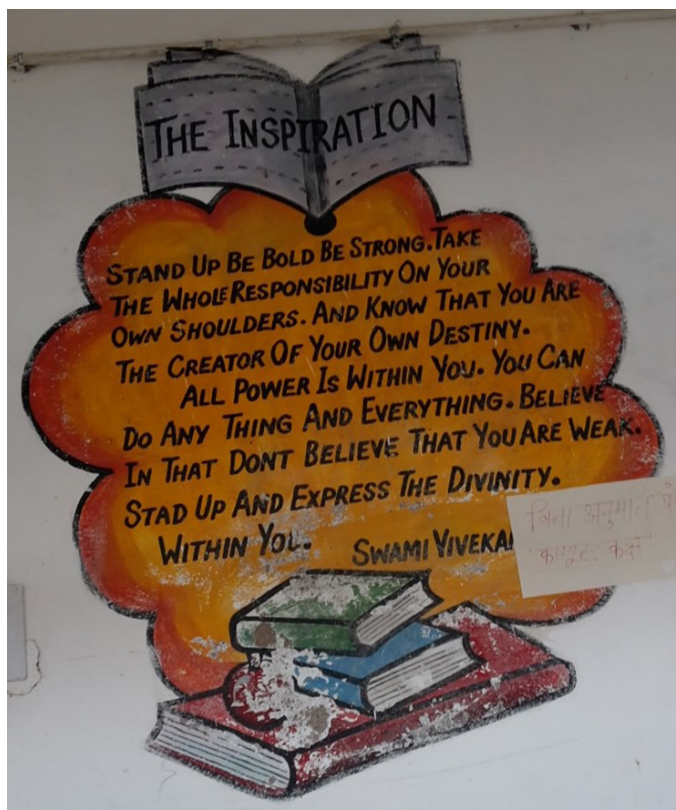 THE INSPIRATION
STAND UP BE BOLD BE STRONG. TAKE
THE WHOLE RESPONSIBILITY ON YOUR
OWN SHOULDERS. AND KNOW THAT YOU ARE
THE CREATOR OF YOUR OWN DESTINY.
ALL POWER IS WITHIN YOU. YOU CAN
DO ANY THING AND EVERYTHING. BELIEVE
IN THAT DONT BELIEVE THAT YOU ARE WEAK.
STAD UP AND EXPRESS THE DIVINITY.
WITHIN YOU.
SWAMI
बिना
कक्ष